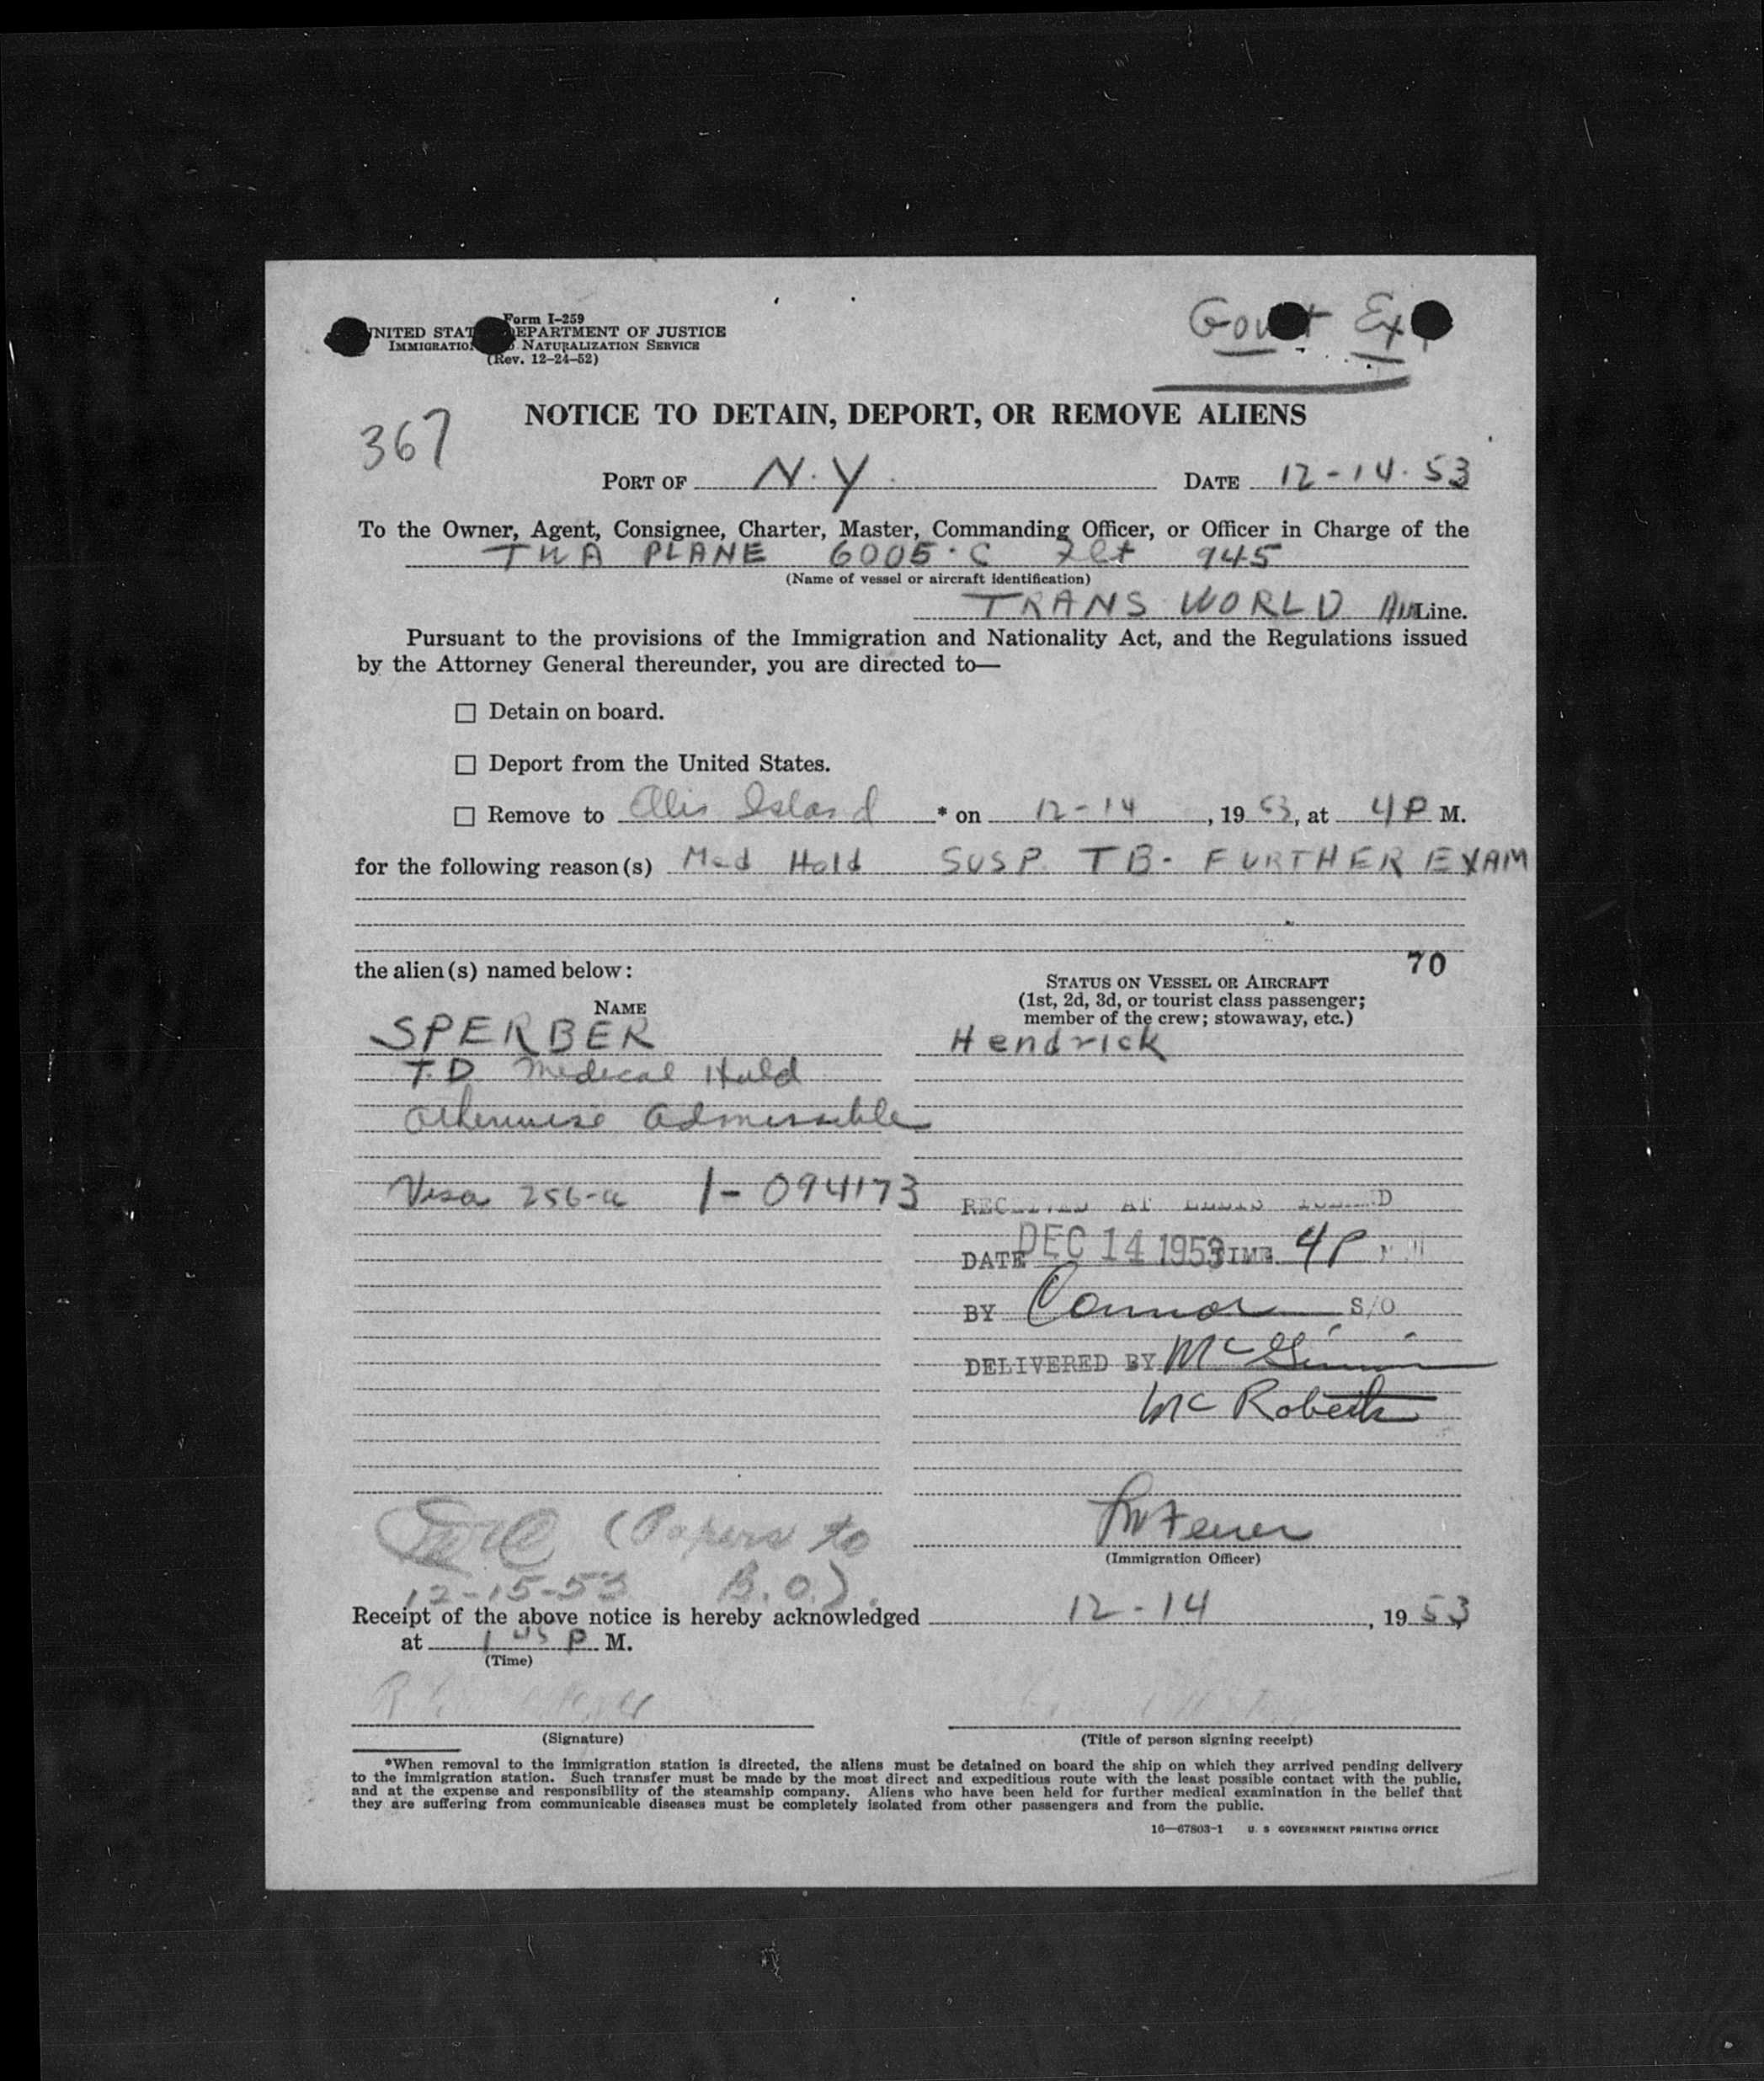 Form I-259
UNITED STAT DEPARTMENT OF JUSTICE
IMMIGRATION NATURALIZATION SERVICE
(Rev. 12-24-52)
Govt Ex
367
NOTICE TO DETAIN, DEPORT, OR REMOVE ALIENS
PORT OF N.Y. DATE 12-14-53
To the Owner, Agent, Consignee, Charter, Master, Commanding Officer, or Officer in Charge of the
TWA PLANE 6005-C Flt 945
(Name of vessel or aircraft identification)
TRANS WORLD Air Line.
Pursuant to the provisions of the Immigration and Nationality Act, and the Regulations issued
by the Attorney General thereunder, you are directed to—
☐ Detain on board.
☐ Deport from the United States.
☐ Remove to Ellis Island * on 12-14, 1953, at 4 P M.
for the following reason(s) Med Hold SUSP. TB- FURTHER EXAM
70
the alien(s) named below:
STATUS ON VESSEL OR AIRCRAFT
(1st, 2d, 3d, or tourist class passenger;
member of the crew; stowaway, etc.)
NAME
SPERBER Hendrick
T.D. Medical Hold
otherwise admissible
Visa 256-a 1-094173
RECEIVED AT ELLIS ISLAND
DATE DEC 14 1953 TIME 4 P M
BY Connor S/O
DELIVERED BY
McRoberts
(Papers to
B.O.)
12-15-53
(Immigration Officer)
Receipt of the above notice is hereby acknowledged 12-14, 1953
at 1 45 P M.
(Time)
(Signature) (Title of person signing receipt)
*When removal to the immigration station is directed, the aliens must be detained on board the ship on which they arrived pending delivery
to the immigration station. Such transfer must be made by the most direct and expeditious route with the least possible contact with the public,
and at the expense and responsibility of the steamship company. Aliens who have been held for further medical examination in the belief that
they are suffering from communicable diseases must be completely isolated from other passengers and from the public.
16—67803-1 U. S GOVERNMENT PRINTING OFFICE